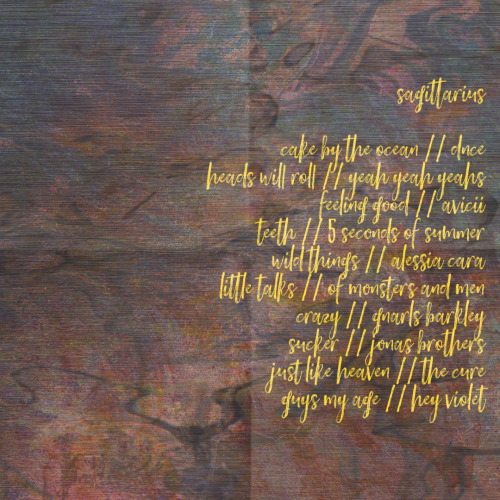 sagittarius
cake by the ocean // dnce
heads will roll // yeah yeah yeahs
feeling good // avicii
teeth // 5 seconds of summer
wild things // alessia cara
little talks // of monsters and men
crazy // gnarls barkley
sucker // jonas brothers
just like heaven // the cure
guys my age // hey violet